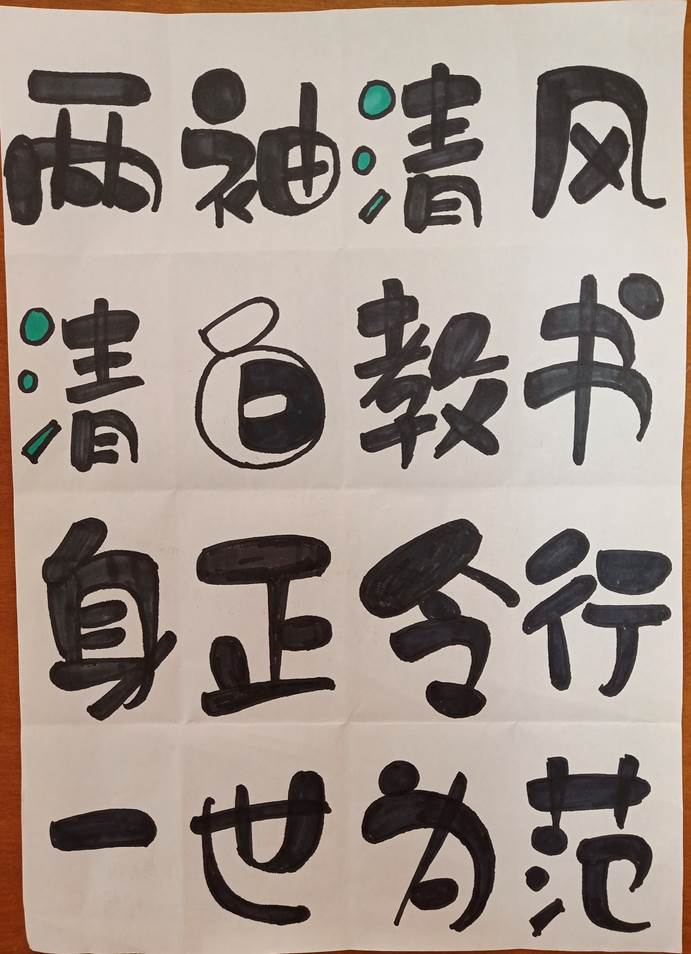 两袖清风
清白教书
身正令行
一世为范